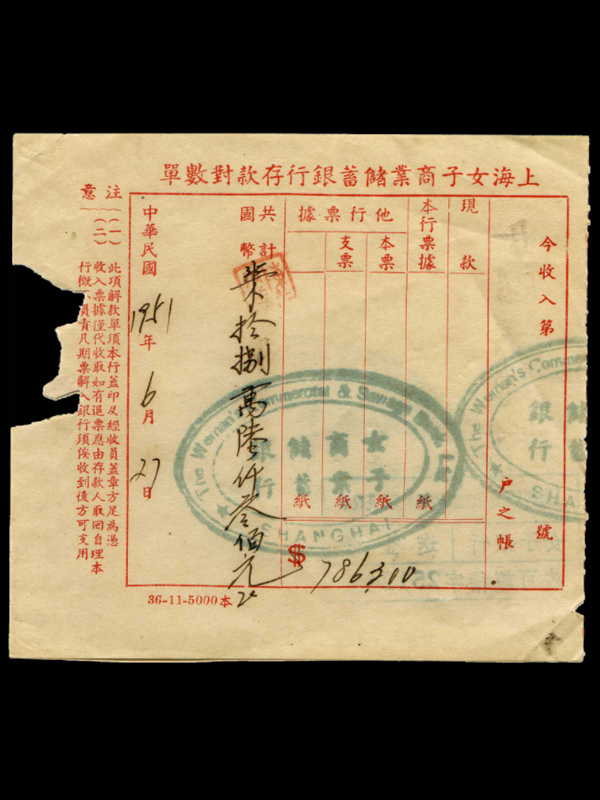 上海女子商業儲蓄銀行存款對數單
今收入第
號
戶之帳
現款
本行票據
紙
他行票據
本票
紙
支票
紙
共計
國幣
柒拾捌萬陸仟叁佰元
$
中華民國
1951年6月27日
注意
(一)此項解款單須本行蓋印及經收員蓋章方足為憑
(二)收入票據僅代收取如有退票應由存款人取回自理本
行概 負責凡期票解入銀行須俟收到後方可支用
36-11-5000本
The Woman's Commercial & Savings Bank
女子商業儲蓄銀行
SHANGHAI